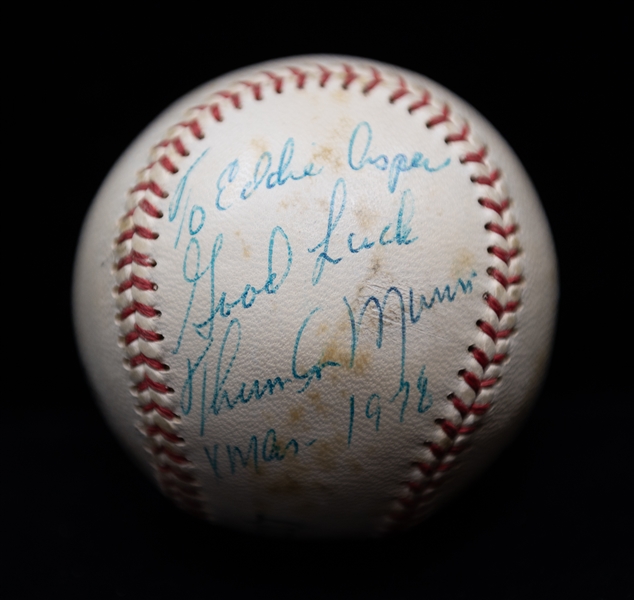 To Eddie Asper
Good Luck
Thurman Munson
Xmas - 1978